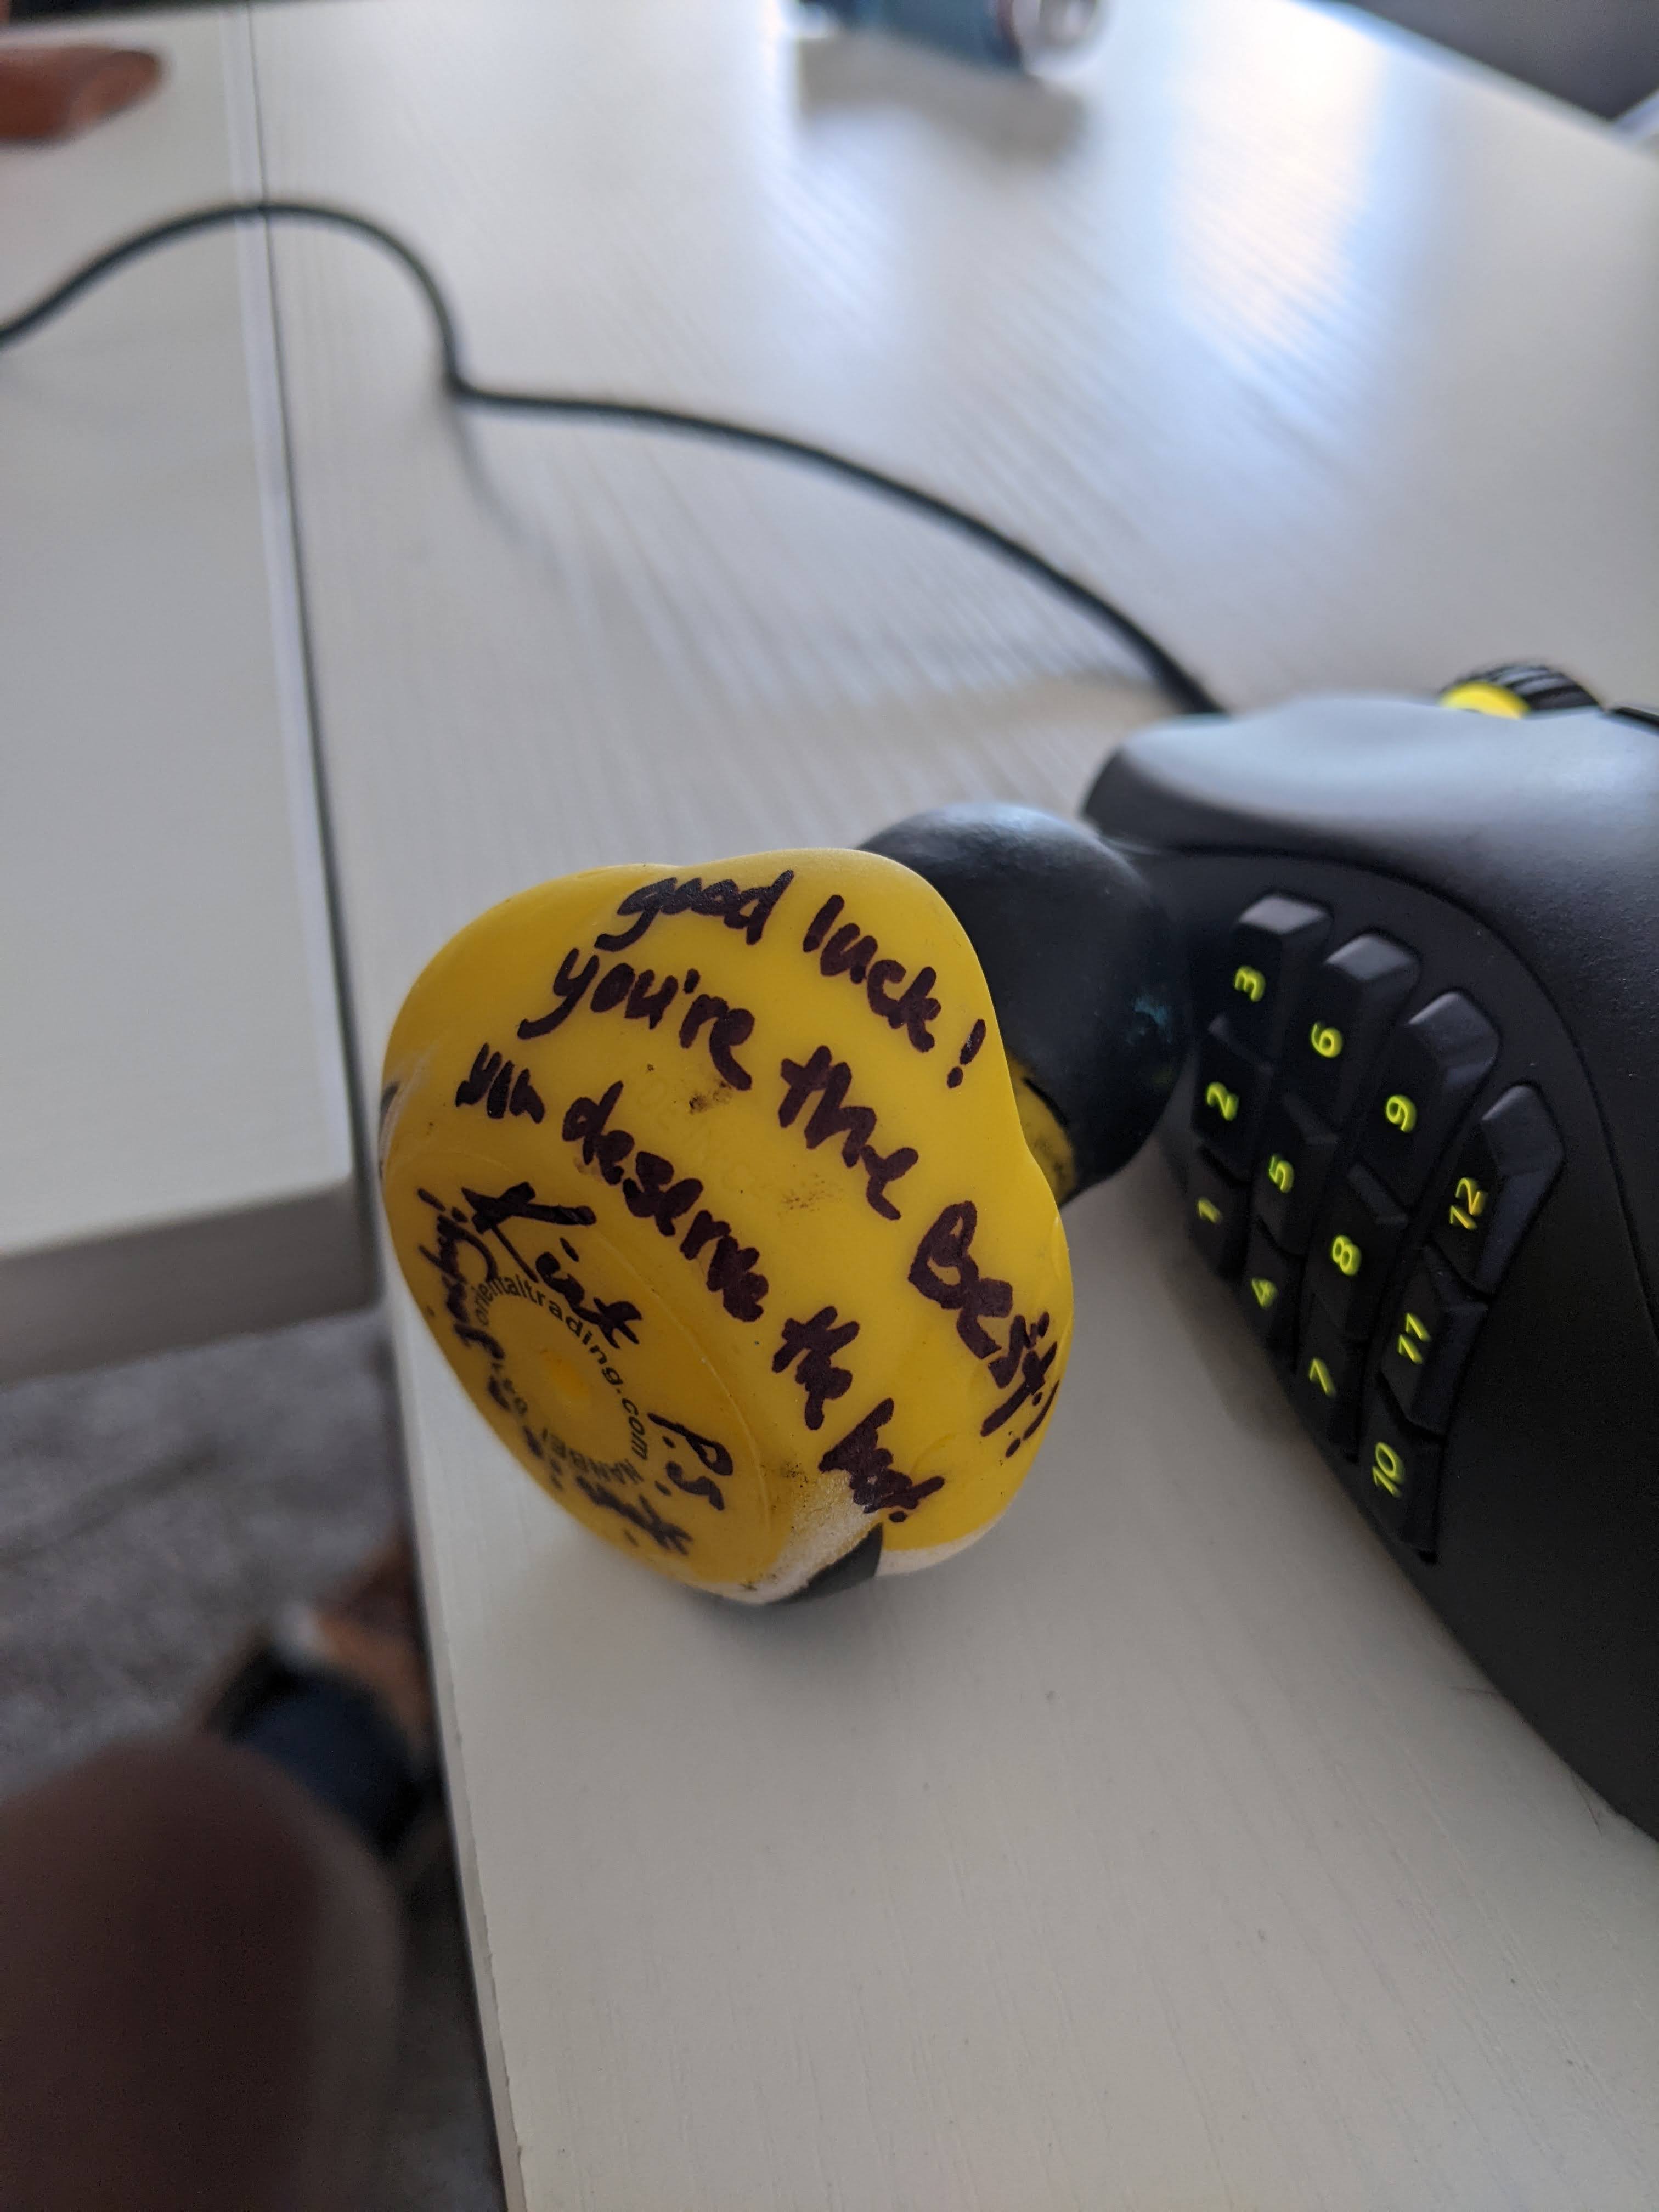 good luck!
you're the Best!
you deserve the best.
P.S
orientaltrading.com
3
6
9
12
2
5
8
11
1
4
7
10